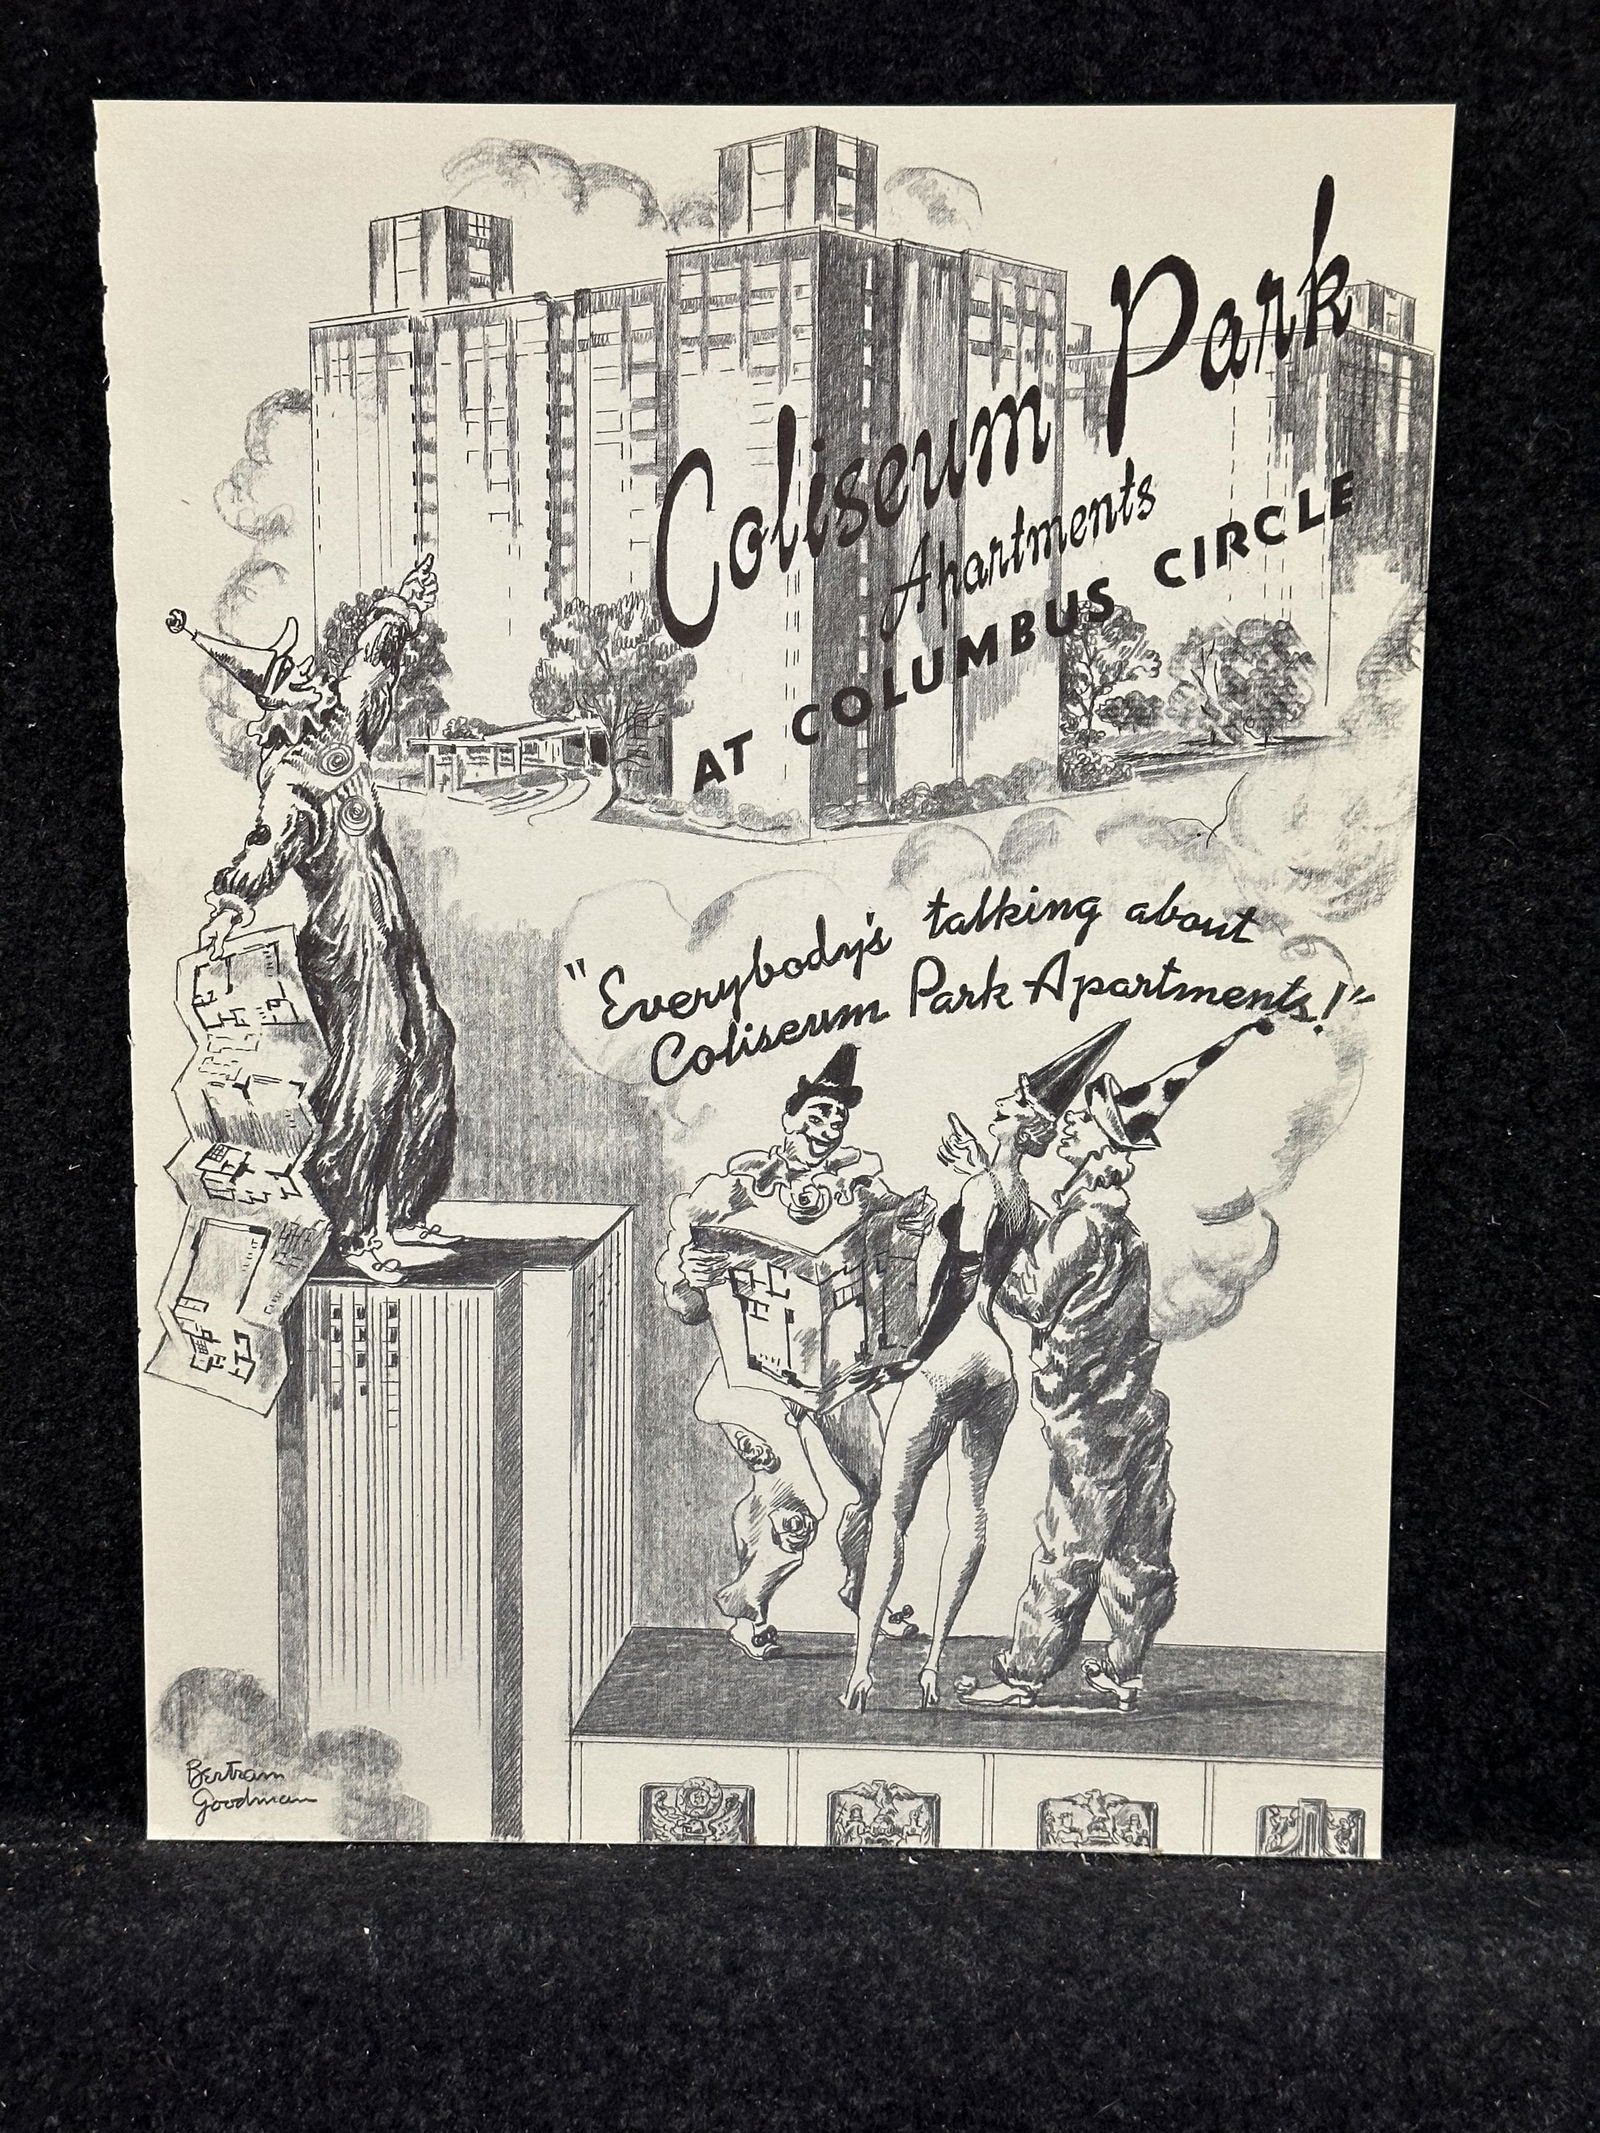 Coliseum Park
Apartments
AT COLUMBUS CIRCLE
"Everybody's talking about
Coliseum Park Apartments!"
Bertram
Goodman